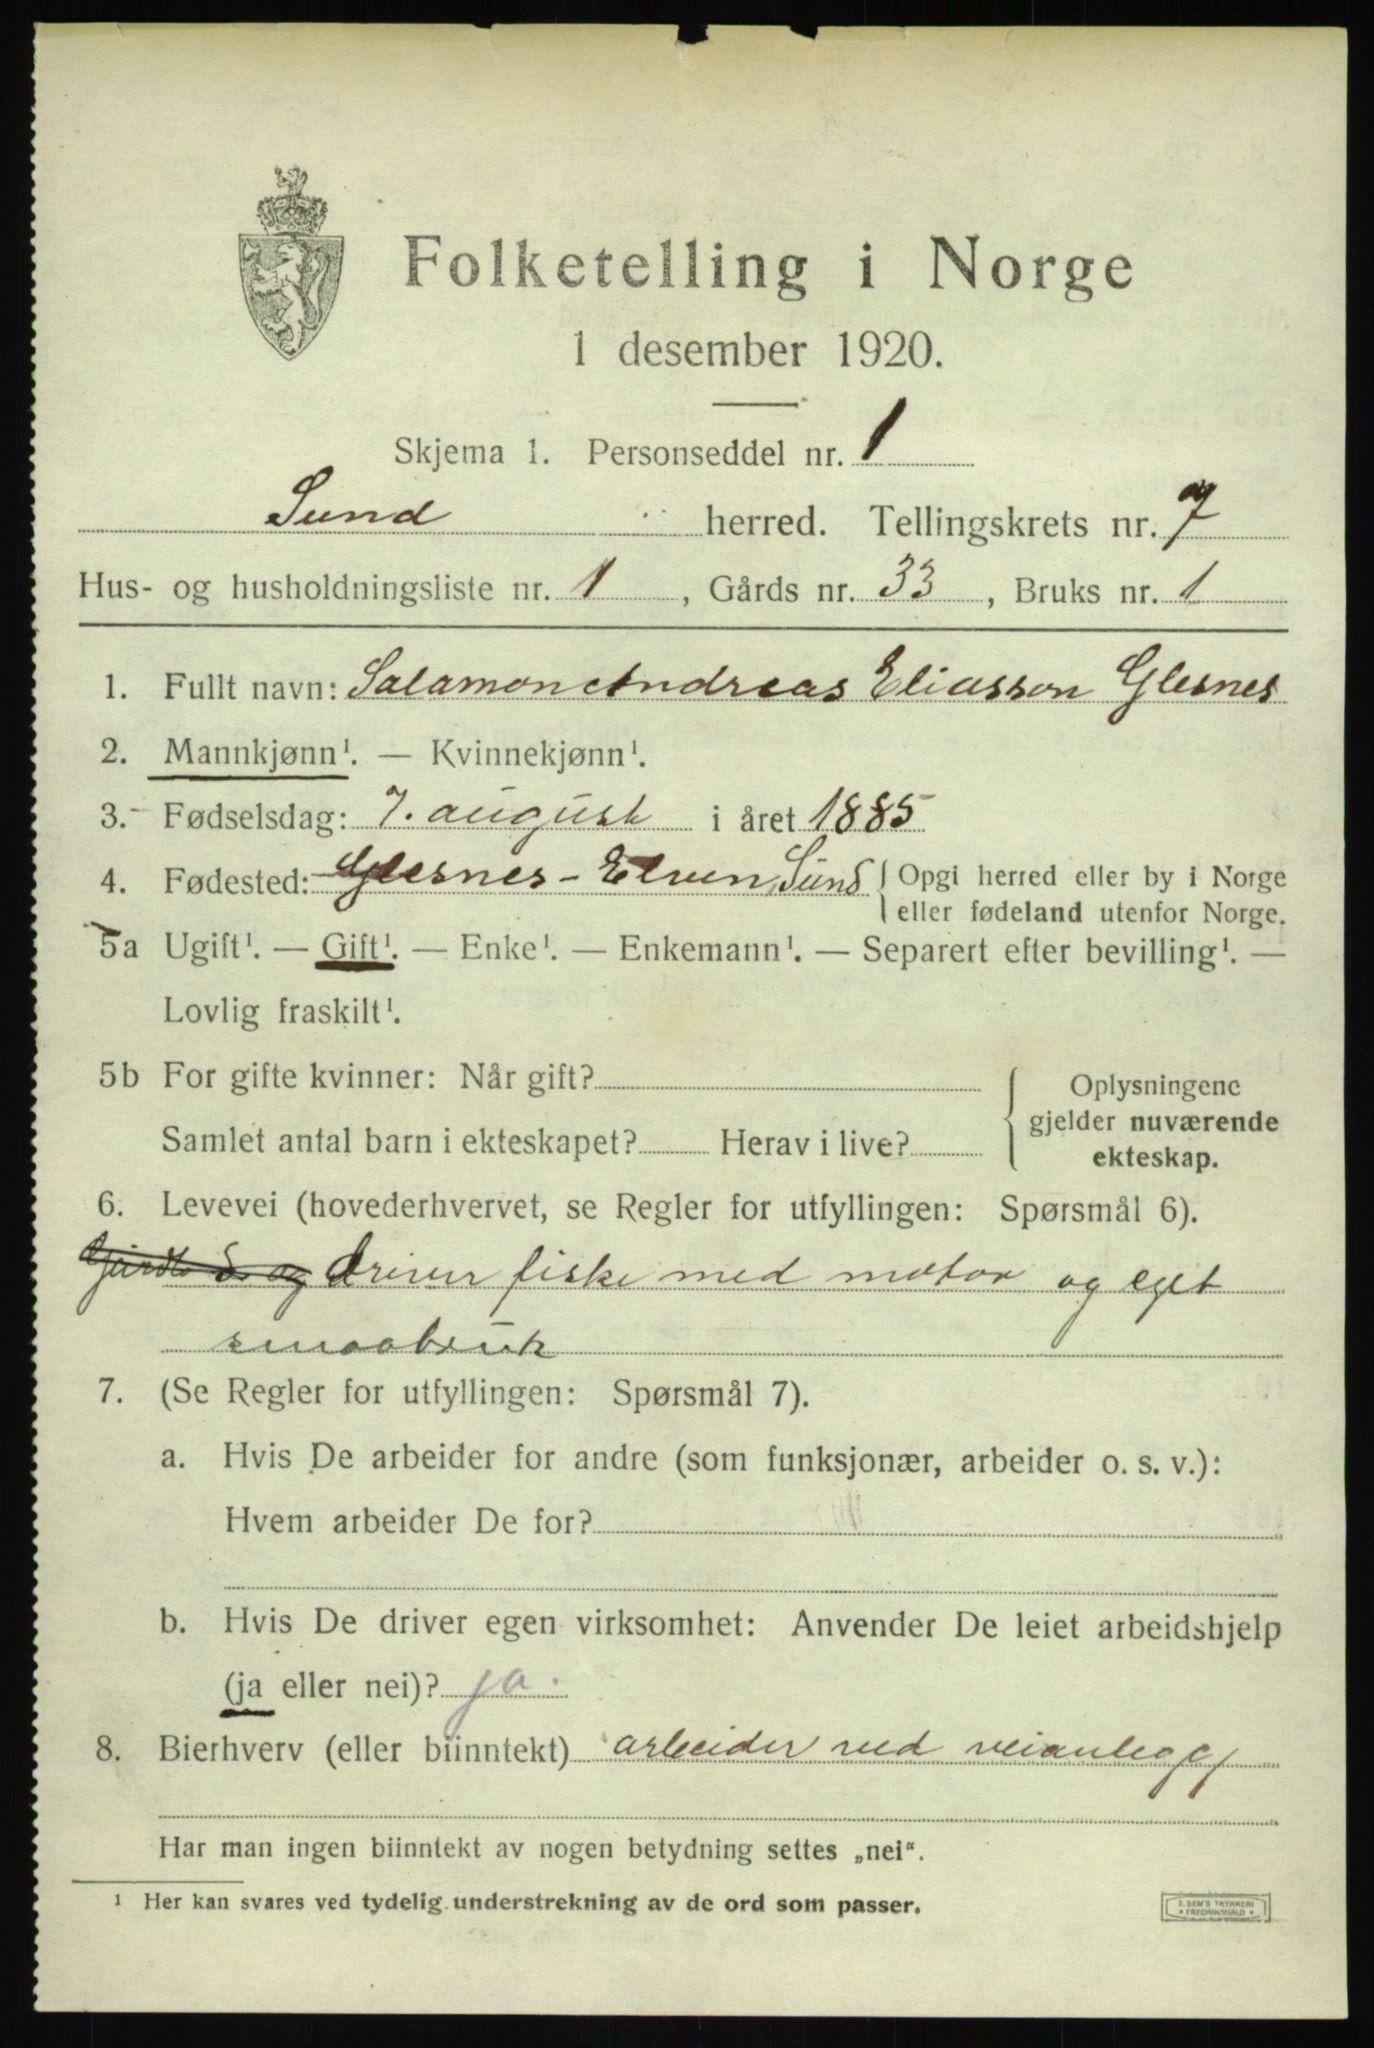 Folketelling i Norge
1 desember 1920.
Skjema 1. Personseddel nr. 1
Sund herred. Tellingskrets nr. 7
Hus- og husholdningsliste nr. 1, Gårds nr. 33, Bruks nr. 1
1. Fullt navn: Salamon Andreas Eliasson Glesnes
2. Mannkjønn¹. — Kvinnekjønn¹.
3. Fødselsdag: 7. august i året 1885
4. Fødested: Glesnes - Elven, Sund { Opgi herred eller by i Norge
eller fødeland utenfor Norge.
5a Ugift¹. — Gift¹. — Enke¹. — Enkemann¹. — Separert efter bevilling¹. —
Lovlig fraskilt¹.
5b For gifte kvinner: Når gift? { Oplysningene
gjelder nuværende
Samlet antal barn i ekteskapet? Herav i live?
ekteskap.
6. Levevei (hovederhvervet, se Regler for utfyllingen: Spørsmål 6).
og driver fiske med motor og eget
smaabruk
7. (Se Regler for utfyllingen: Spørsmål 7).
a. Hvis De arbeider for andre (som funksjonær, arbeider o. s. v.):
Hvem arbeider De for?
b. Hvis De driver egen virksomhet: Anvender De leiet arbeidshjelp
(ja eller nei)? ja.
8. Bierhverv (eller biinntekt) arbeider ved veianlegg
Har man ingen biinntekt av nogen betydning settes „nei“.
¹ Her kan svares ved tydelig understrekning av de ord som passer.
E. SEM'S TRYKKERI
* FREDRIKSHALD *